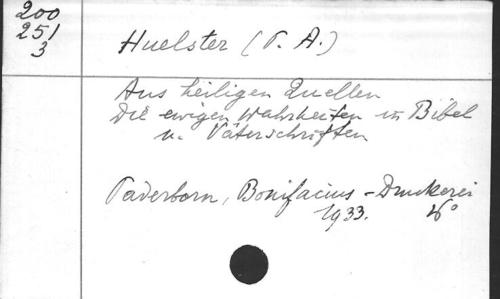 200
251
3
Huelster (P. A.)
Aus heiligen Quellen
Die ewigen Wahrheiten in Bibel
u. Väterschriften
Paderborn, Bonifacius-Druckerei
1933. 4°